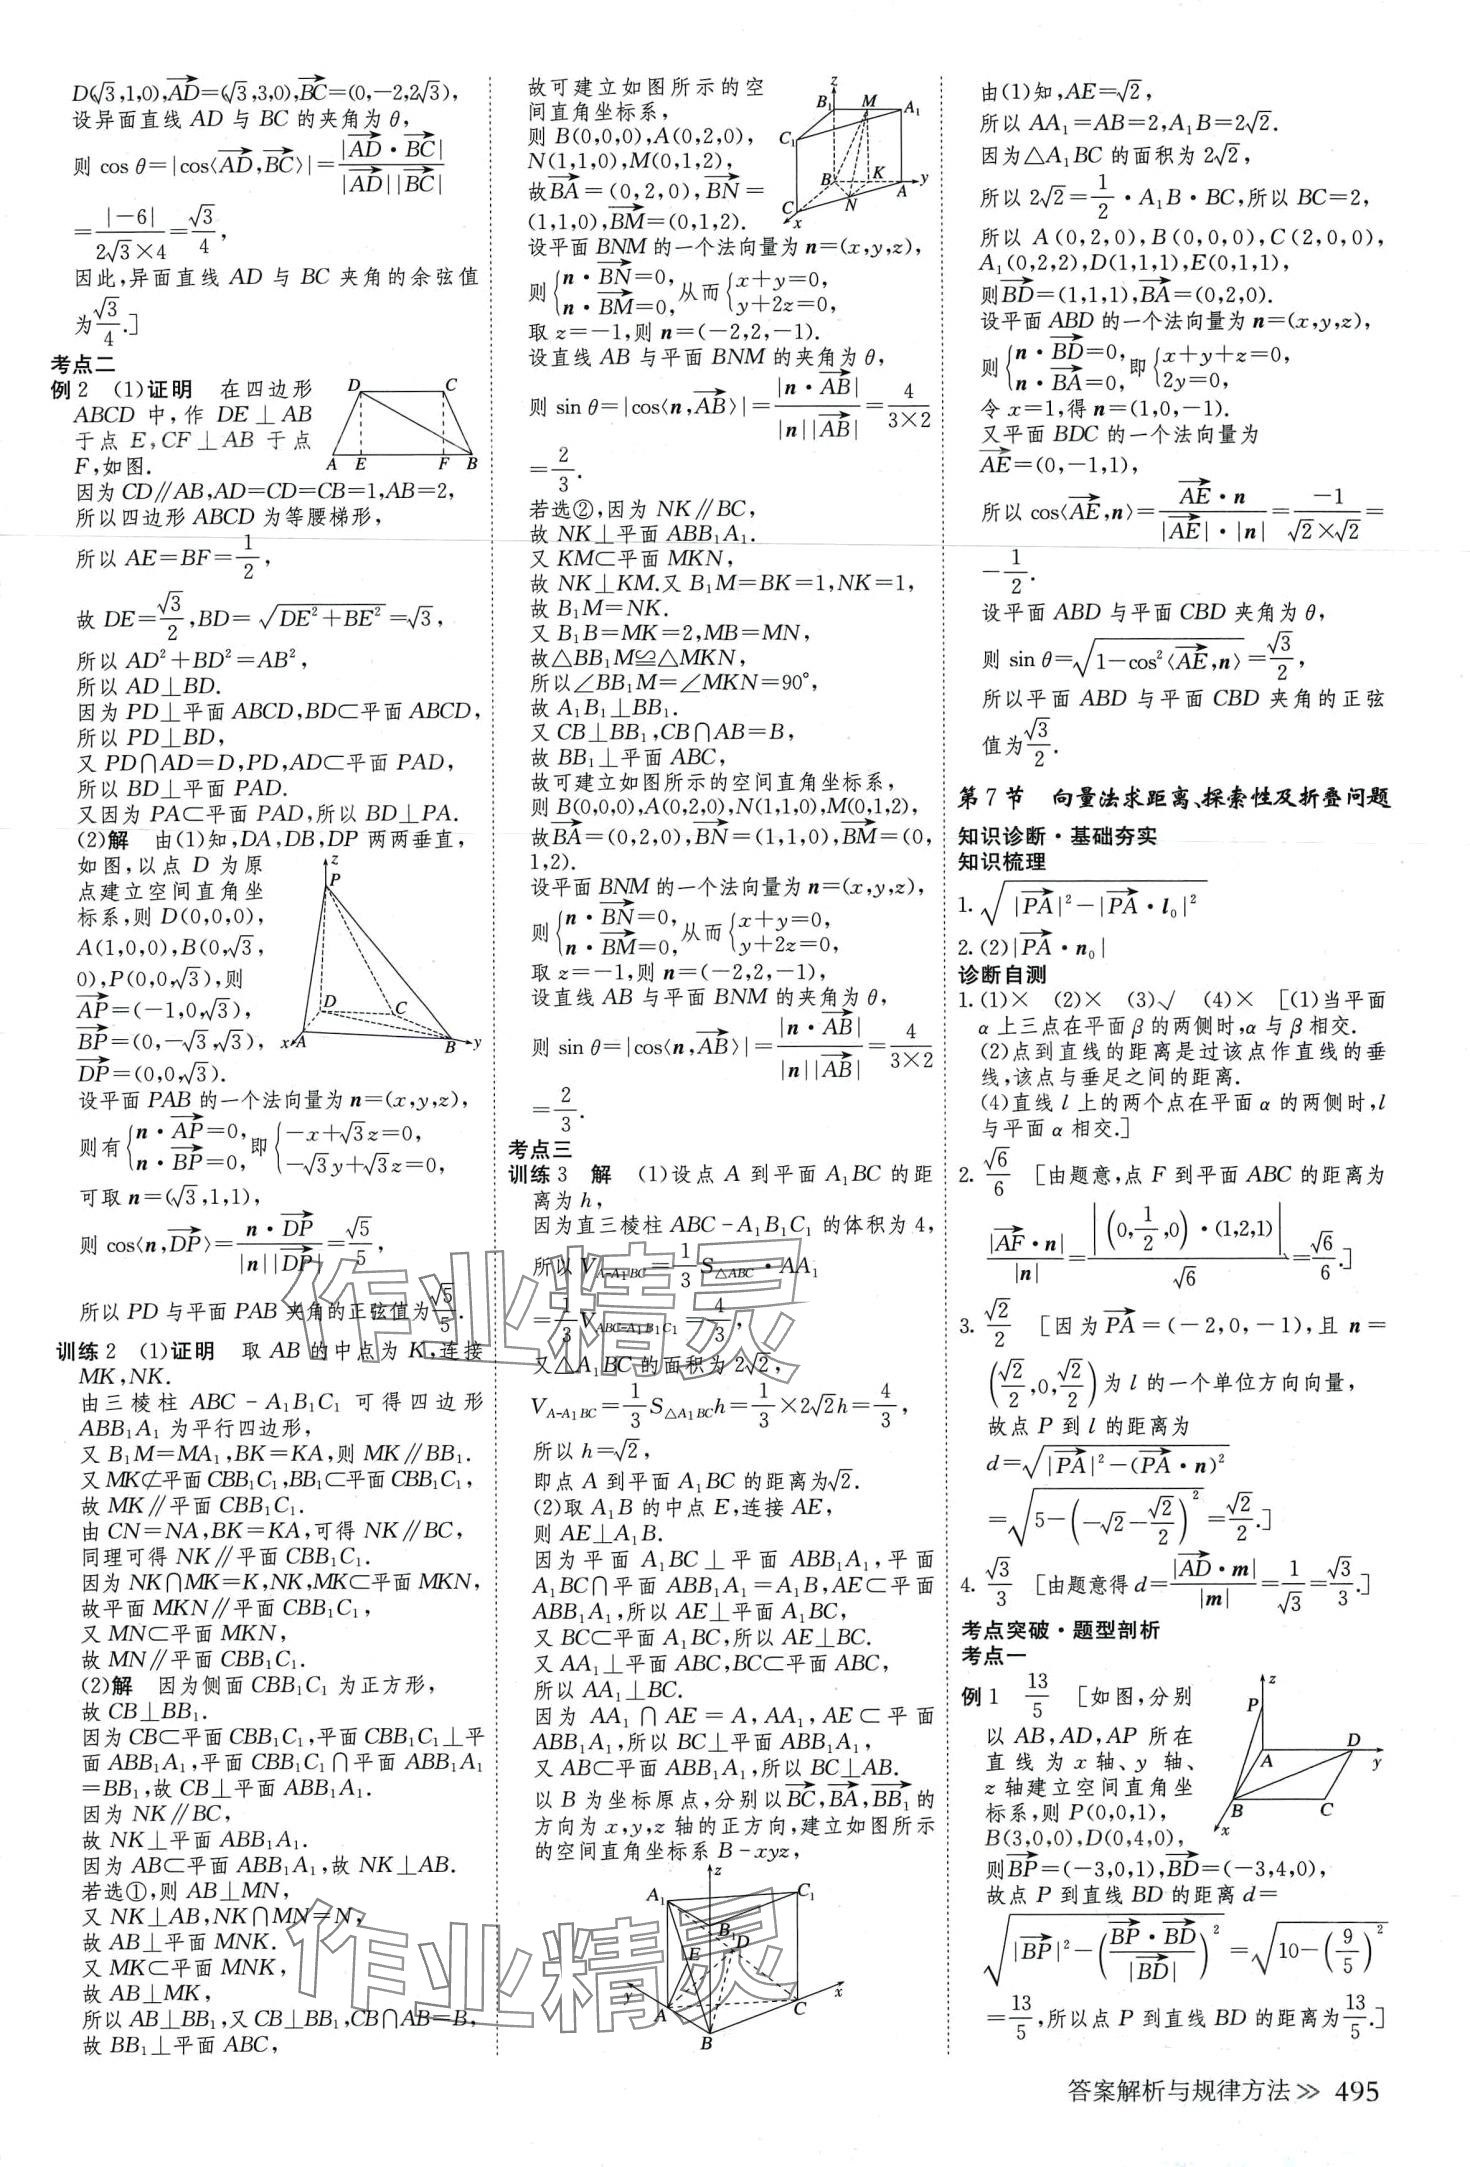 D(√3,1,0),AD→=(√3,3,0),BC→=(0,-2,2√3),
设异面直线 AD 与 BC 的夹角为 θ,
则 cos θ=|cos⟨AD→,BC→⟩|=|AD→·BC→|/(|AD→||BC→|)
=|-6|/(2√3×4)=√3/4,
因此,异面直线 AD 与 BC 夹角的余弦值
为√3/4.]
考点二
例2 (1)证明 在四边形
ABCD 中,作 DE⊥AB
于点 E,CF⊥AB 于点
F,如图.
D C A E F B
因为 CD∥AB,AD=CD=CB=1,AB=2,
所以四边形 ABCD 为等腰梯形,
所以 AE=BF=1/2,
故 DE=√3/2,BD=√(DE²+BE²)=√3,
所以 AD²+BD²=AB²,
所以 AD⊥BD.
因为 PD⊥平面 ABCD,BD⊂平面 ABCD,
所以 PD⊥BD,
又 PD∩AD=D,PD,AD⊂平面 PAD,
所以 BD⊥平面 PAD.
又因为 PA⊂平面 PAD,所以 BD⊥PA.
(2)解 由(1)知,DA,DB,DP 两两垂直,
如图,以点 D 为原
点建立空间直角坐
标系,则 D(0,0,0),
A(1,0,0),B(0,√3,
0),P(0,0,√3),则
AP→=(-1,0,√3),
BP→=(0,-√3,√3),
DP→=(0,0,√3).
z P D C x A B y
设平面 PAB 的一个法向量为 n=(x,y,z),
则有{n·AP→=0, n·BP→=0, 即{-x+√3z=0, -√3y+√3z=0,
可取 n=(√3,1,1),
则 cos⟨n,DP→⟩=n·DP→/(|n||DP→|)=√5/5,
所以 PD 与平面 PAB 夹角的正弦值为√5/5.
训练2 (1)证明 取 AB 的中点为 K,连接
MK,NK.
由三棱柱 ABC-A₁B₁C₁ 可得四边形
ABB₁A₁ 为平行四边形,
又 B₁M=MA₁,BK=KA,则 MK∥BB₁.
又 MK⊄平面 CBB₁C₁,BB₁⊂平面 CBB₁C₁,
故 MK∥平面 CBB₁C₁.
由 CN=NA,BK=KA,可得 NK∥BC,
同理可得 NK∥平面 CBB₁C₁.
因为 NK∩MK=K,NK,MK⊂平面 MKN,
故平面 MKN∥平面 CBB₁C₁,
又 MN⊂平面 MKN,
故 MN∥平面 CBB₁C₁.
(2)解 因为侧面 CBB₁C₁ 为正方形,
故 CB⊥BB₁.
因为 CB⊂平面 CBB₁C₁,平面 CBB₁C₁⊥平
面 ABB₁A₁,平面 CBB₁C₁∩平面 ABB₁A₁
=BB₁,故 CB⊥平面 ABB₁A₁.
因为 NK∥BC,
故 NK⊥平面 ABB₁A₁.
因为 AB⊂平面 ABB₁A₁,故 NK⊥AB.
若选①,则 AB⊥MN,
又 NK⊥AB,NK∩MN=N,
故 AB⊥平面 MNK.
又 MK⊂平面 MNK,
故 AB⊥MK,
所以 AB⊥BB₁,又 CB⊥BB₁,CB∩AB=B,
故 BB₁⊥平面 ABC,
故可建立如图所示的空
间直角坐标系,
则 B(0,0,0),A(0,2,0),
N(1,1,0),M(0,1,2),
故BA→=(0,2,0),BN→=
(1,1,0),BM→=(0,1,2).
z B₁ M A₁ C₁ B K A y C N x
设平面 BNM 的一个法向量为 n=(x,y,z),
则{n·BN→=0, n·BM→=0, 从而{x+y=0, y+2z=0,
取 z=-1,则 n=(-2,2,-1).
设直线 AB 与平面 BNM 的夹角为 θ,
则 sin θ=|cos⟨n,AB→⟩|=|n·AB→|/(|n||AB→|)=4/(3×2)
=2/3.
若选②,因为 NK∥BC,
故 NK⊥平面 ABB₁A₁.
又 KM⊂平面 MKN,
故 NK⊥KM.又 B₁M=BK=1,NK=1,
故 B₁M=NK.
又 B₁B=MK=2,MB=MN,
故△BB₁M≌△MKN,
所以∠BB₁M=∠MKN=90°,
故 A₁B₁⊥BB₁.
又 CB⊥BB₁,CB∩AB=B,
故 BB₁⊥平面 ABC,
故可建立如图所示的空间直角坐标系,
则 B(0,0,0),A(0,2,0),N(1,1,0),M(0,1,2),
故BA→=(0,2,0),BN→=(1,1,0),BM→=(0,
1,2).
设平面 BNM 的一个法向量为 n=(x,y,z),
则{n·BN→=0, n·BM→=0, 从而{x+y=0, y+2z=0,
取 z=-1,则 n=(-2,2,-1),
设直线 AB 与平面 BNM 的夹角为 θ,
则 sin θ=|cos⟨n,AB→⟩|=|n·AB→|/(|n||AB→|)=4/(3×2)
=2/3.
考点三
训练3 解 (1)设点 A 到平面 A₁BC 的距
离为 h,
因为直三棱柱 ABC-A₁B₁C₁ 的体积为 4,
所以 V_{A-A₁BC}=1/3 S_{△ABC}·AA₁
=1/3 V_{ABC-A₁B₁C₁}=4/3,
又△A₁BC 的面积为 2√2,
V_{A-A₁BC}=1/3 S_{△A₁BC}h=1/3×2√2h=4/3,
所以 h=√2,
即点 A 到平面 A₁BC 的距离为√2.
(2)取 A₁B 的中点 E,连接 AE,
则 AE⊥A₁B.
因为平面 A₁BC⊥平面 ABB₁A₁,平面
A₁BC∩平面 ABB₁A₁=A₁B,AE⊂平面
ABB₁A₁,所以 AE⊥平面 A₁BC,
又 BC⊂平面 A₁BC,所以 AE⊥BC.
又 AA₁⊥平面 ABC,BC⊂平面 ABC,
所以 AA₁⊥BC.
因为 AA₁∩AE=A,AA₁,AE⊂平面
ABB₁A₁,所以 BC⊥平面 ABB₁A₁,
又 AB⊂平面 ABB₁A₁,所以 BC⊥AB.
以 B 为坐标原点,分别以BC→,BA→,BB₁→的
方向为 x,y,z 轴的正方向,建立如图所示
的空间直角坐标系 B-xyz,
z A₁ C₁ B₁ D E y A C x B
由(1)知,AE=√2,
所以 AA₁=AB=2,A₁B=2√2.
因为△A₁BC 的面积为 2√2,
所以 2√2=1/2·A₁B·BC,所以 BC=2,
所以 A(0,2,0),B(0,0,0),C(2,0,0),
A₁(0,2,2),D(1,1,1),E(0,1,1),
则BD→=(1,1,1),BA→=(0,2,0).
设平面 ABD 的一个法向量为 n=(x,y,z),
则{n·BD→=0, n·BA→=0, 即{x+y+z=0, 2y=0,
令 x=1,得 n=(1,0,-1).
又平面 BDC 的一个法向量为
AE→=(0,-1,1),
所以 cos⟨AE→,n⟩=AE→·n/(|AE→|·|n|)=-1/(√2×√2)=
-1/2.
设平面 ABD 与平面 CBD 夹角为 θ,
则 sin θ=√(1-cos²⟨AE→,n⟩)=√3/2,
所以平面 ABD 与平面 CBD 夹角的正弦
值为√3/2.
第7节 向量法求距离、探索性及折叠问题
知识诊断·基础夯实
知识梳理
1.√(|PA→|²-|PA→·l₀|²)
2.(2)|PA→·n₀|
诊断自测
1.(1)× (2)× (3)√ (4)× [(1)当平面
α 上三点在平面 β 的两侧时,α 与 β 相交.
(2)点到直线的距离是过该点作直线的垂
线,该点与垂足之间的距离.
(4)直线 l 上的两个点在平面 α 的两侧时,l
与平面 α 相交.]
2.√6/6 [由题意,点 F 到平面 ABC 的距离为
|AF→·n|/|n|=|(0,1/2,0)·(1,2,1)|/√6=√6/6.]
3.√2/2 [因为PA→=(-2,0,-1),且 n=
(√2/2,0,√2/2)为 l 的一个单位方向向量,
故点 P 到 l 的距离为
d=√(|PA→|²-(PA→·n)²)
=√(5-(-√2-√2/2)²)=√2/2.]
4.√3/3 [由题意得 d=|AD→·m|/|m|=1/√3=√3/3.]
考点突破·题型剖析
考点一
例1 13/5 [如图,分别
以 AB,AD,AP 所在
直线为 x 轴、y 轴、
z 轴建立空间直角坐
标系,则 P(0,0,1),
B(3,0,0),D(0,4,0),
z P A D y B C x
则BP→=(-3,0,1),BD→=(-3,4,0),
故点 P 到直线 BD 的距离 d=
√(|BP→|²-(BP→·BD→/|BD→|)²)=√(10-(9/5)²)
=13/5,所以点 P 到直线 BD 的距离为13/5.]
答案解析与规律方法 》 495
作业精灵
作业精灵